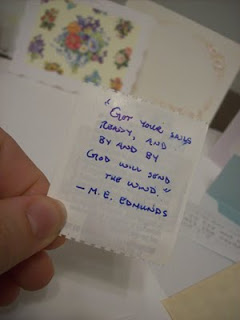 "Get your sails
ready, and
by and by
God will send
the wind."
— M. E. Edmunds